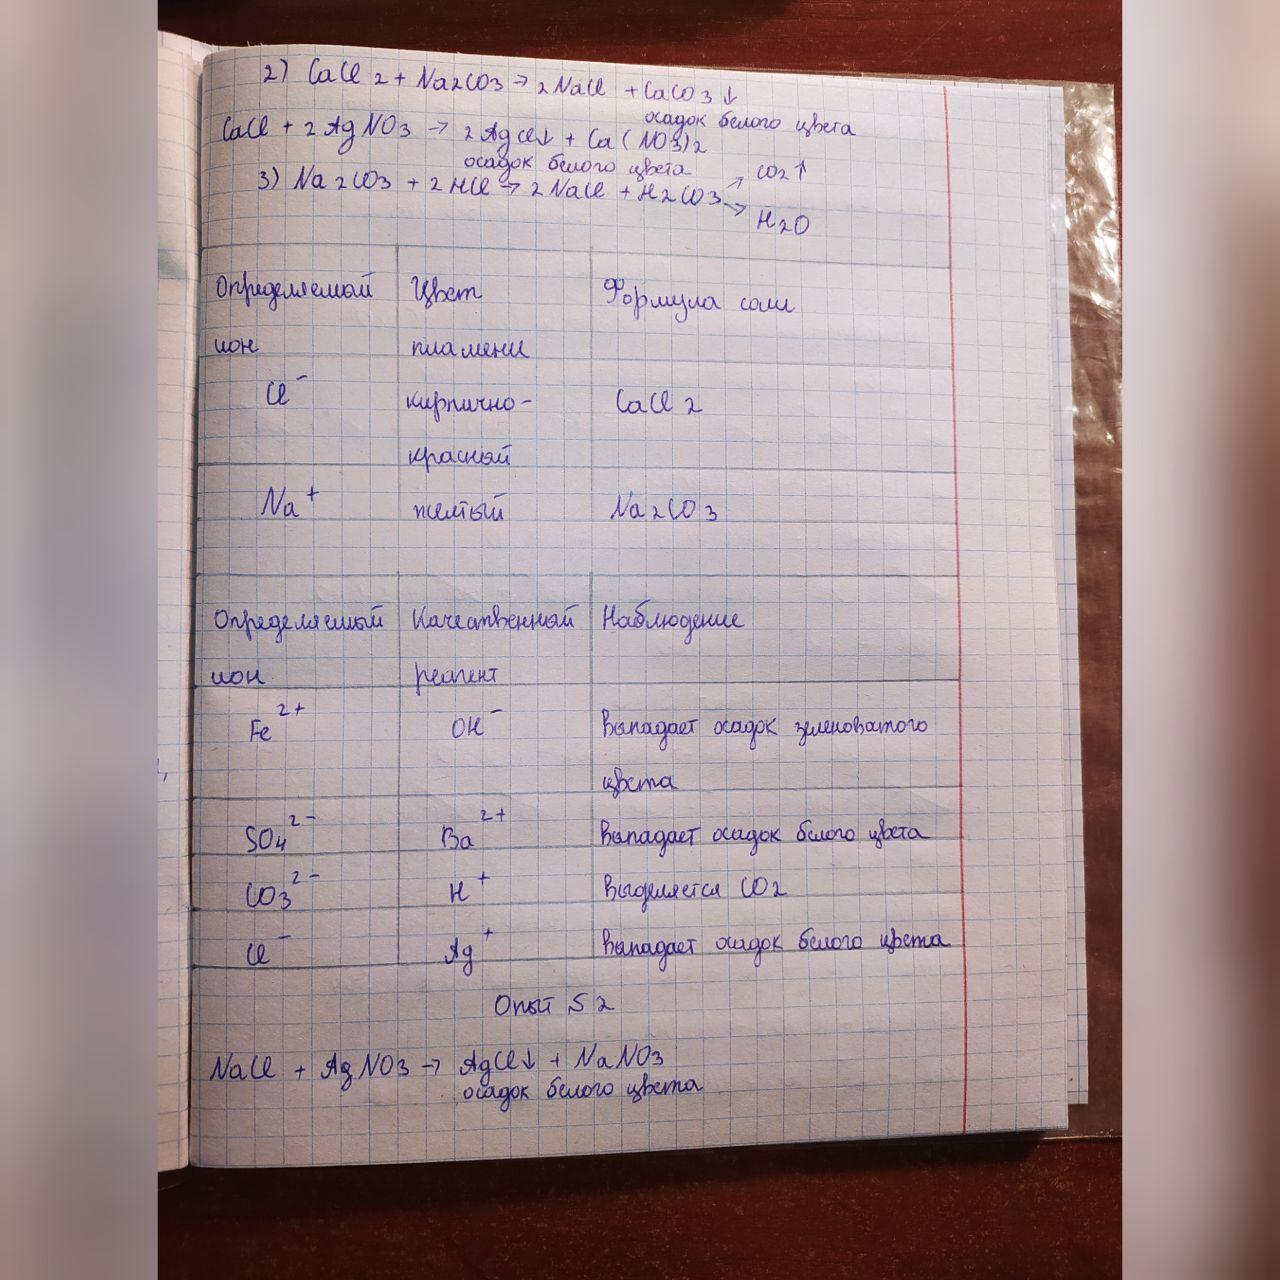 2) CaCl2 + Na2CO3 → 2NaCl + CaCO3↓
осадок белого цвета
CaCl + 2AgNO3 → 2AgCl↓ + Ca(NO3)2
осадок белого цвета
CO2↑
3) Na2CO3 + 2HCl → 2NaCl + H2CO3
H2O
Определяемый Цвет Формула соли
ион пламени
Cl⁻ кирпично- CaCl2
красный
Na⁺ желтый Na2CO3
Определяемый Качественный Наблюдение
ион реагент
Fe²⁺ OH⁻ Выпадает осадок зеленоватого
цвета
SO4²⁻ Ba²⁺ Выпадает осадок белого цвета
CO3²⁻ H⁺ Выделяется CO2
Cl⁻ Ag⁺ Выпадает осадок белого цвета
Опыт S2
NaCl + AgNO3 → AgCl↓ + NaNO3
осадок белого цвета